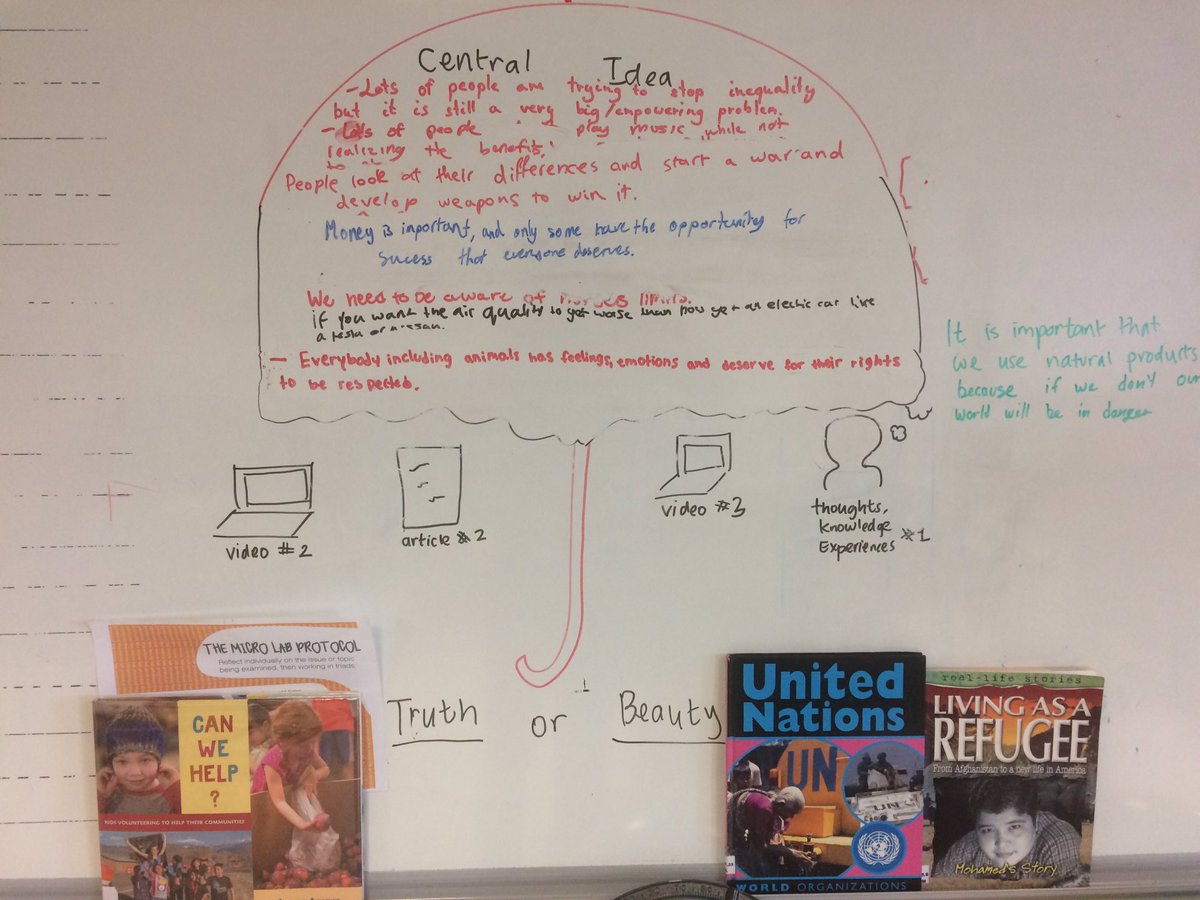 Central Idea
- Lots of people are trying to stop inequality
but it is still a very big/empowering problem.
- Lots of people play music while not
realizing the benefits.
People look at their differences and start a war and
develop weapons to win it.
Money is important, and only some have the opportunity for
sucess that everyone deserves.
We need to be aware of limits.
if you want the air quality to get worse than now get an electric car like
a tesla or nissan.
- Everybody including animals has feelings, emotions and deserve for their rights
to be respected.
It is important that
we use natural products
because if we don't our
world will be in danger
video #2
article #2
video #3
thoughts,
knowledge
Experiences #1
THE MICRO LAB PROTOCOL
Reflect individually on the issue or topic
being examined, then working in triads
Truth or Beauty
CAN
WE
HELP
?
KIDS VOLUNTEERING TO HELP THEIR COMMUNITIES
United
Nations
UN
UN
WORLD ORGANIZATIONS
real-life stories
LIVING AS A
REFUGEE
From Afghanistan to a new life in America
Mohamed's Story